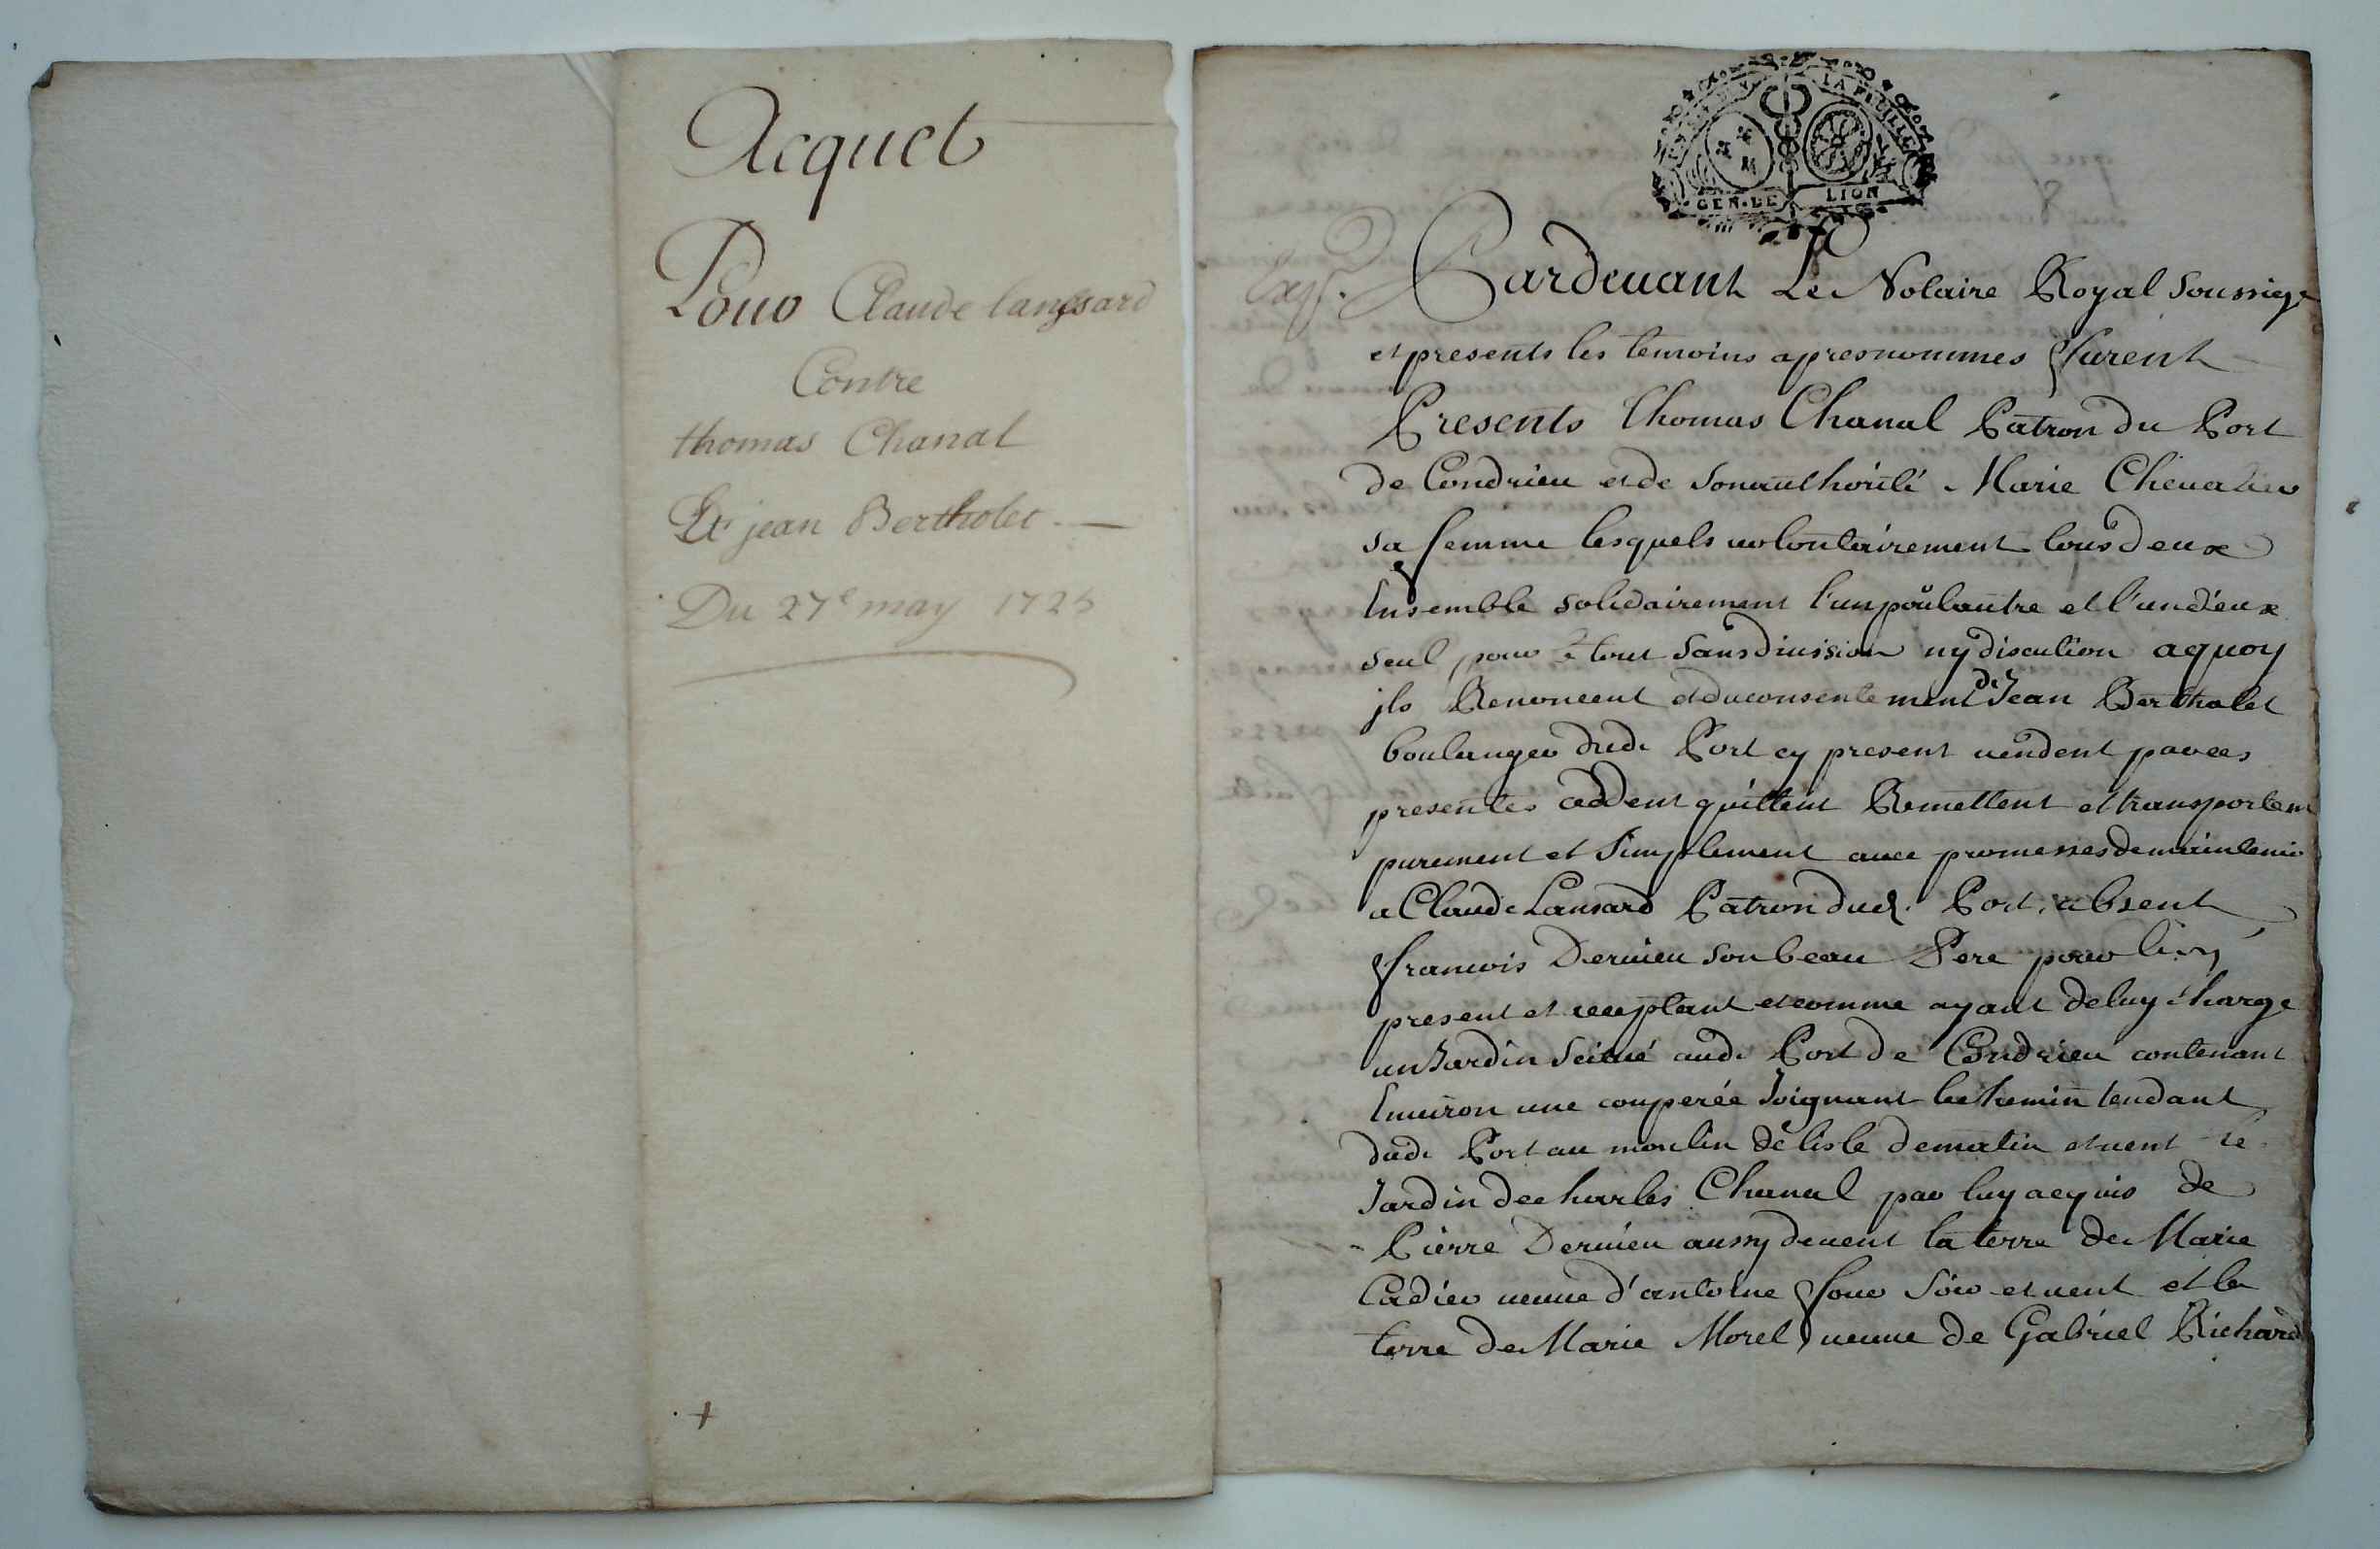 Acquet
Pour Claude lanssard
Contre
thomas Chanal
Et jean Bertholet
Du 27e may 1725
+
LA FEUILLE
GEN. DE LION
Exp.
Pardeuant Le Notaire Royal soussigé
et presents les temoins apresnommes furent
Presents Thomas Chanal Patron du Port
de Condrieu et de son authorité Marie Cheualier
sa femme lesquels uolontairement tous deux
Ensemble solidairement l'un pour lautre et l'un d'eux
seul pour le tout sans diuission ny discution aquoy
jls Renoncent et du consentement de Jean Bertholet
boulanger dud. Port cy present uendent par ces
presentes ceddent quittent Remettent et transportent
purement et simplement auec promesses de maintenir
a Claude Lansard Patron dud. Port, absent
francois Deruieu son beau Pere pour luy
present et acceptant et comme ayant de luy charge
un Jardin scitué aud. Port de Condrieu contenant
Enuiron une couperée Joignant le chemin tendant
dud. Port au moulin de lisle de matin et uent le
Jardin de charles Chanal par luy acquis de
Pierre Deruieu aussy de uent la terre de Marie
Cadier ueuue d'antoine four soir et uent et la
terre de Marie Morel ueuue de Gabriel Richard